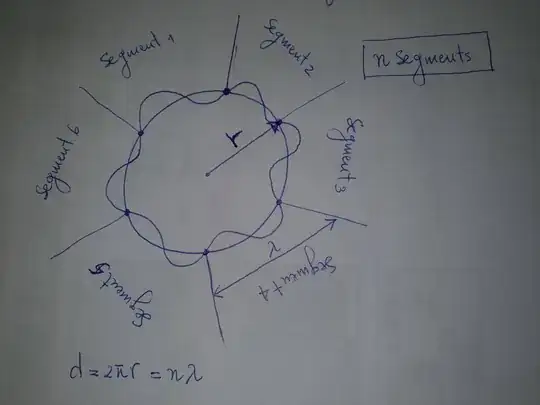 Segment 1
Segment 2
n segments
r
Segment 6
Segment 3
λ
Segment 4
Segment 5
d = 2πr = nλ